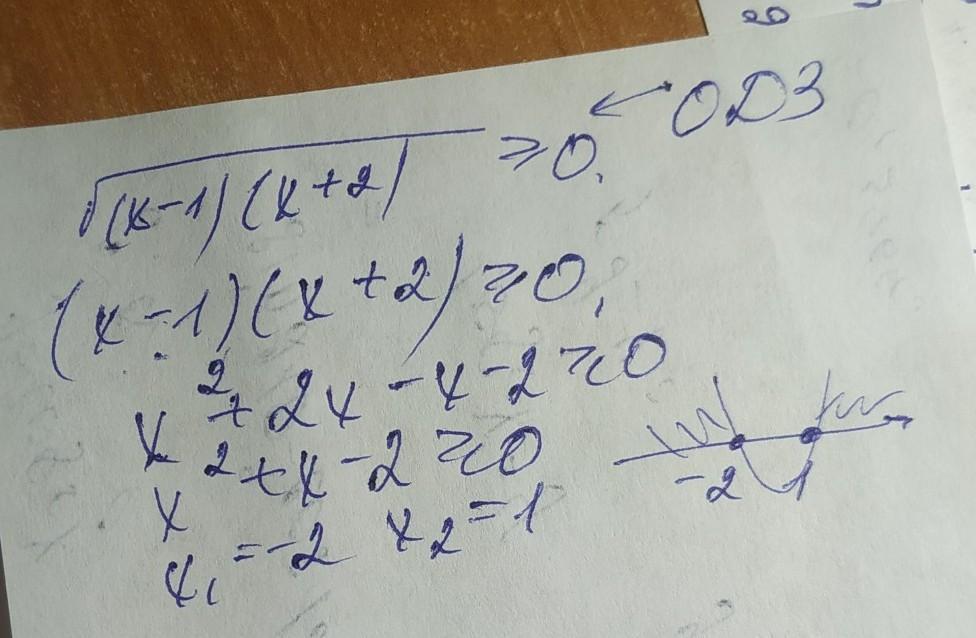 √(x-1)(x+2) ≥0. ← ОДЗ
(x-1)(x+2)≥0,
x²+2x-x-2≥0
x²+x-2≥0
x₁=-2 x₂=1
-2 1